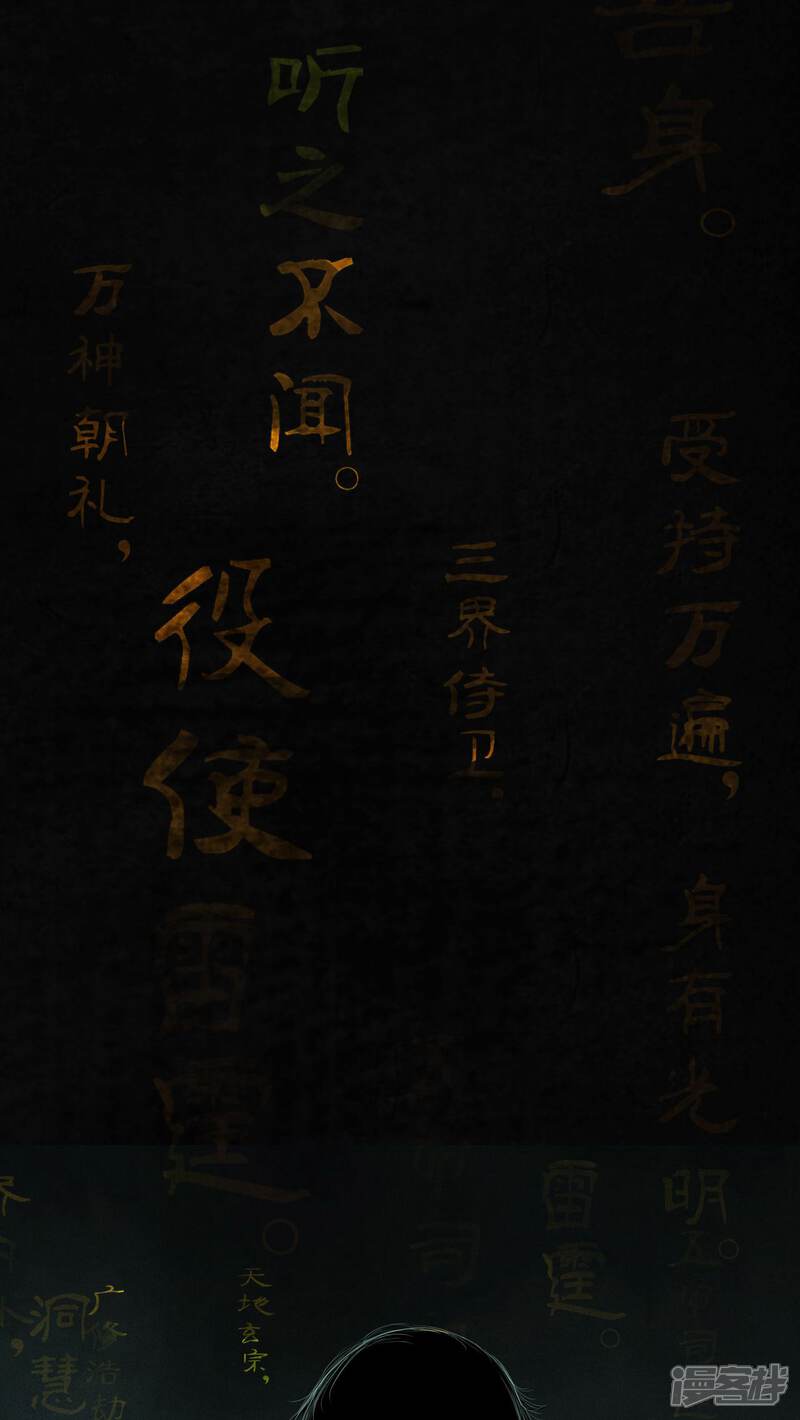 吾身。
受持万遍，
身有光明。
三界侍卫。
听之不闻。
役使雷霆。
万神朝礼，
雷霆。
司
天地玄宗，
广修浩劫
洞慧
漫客栈